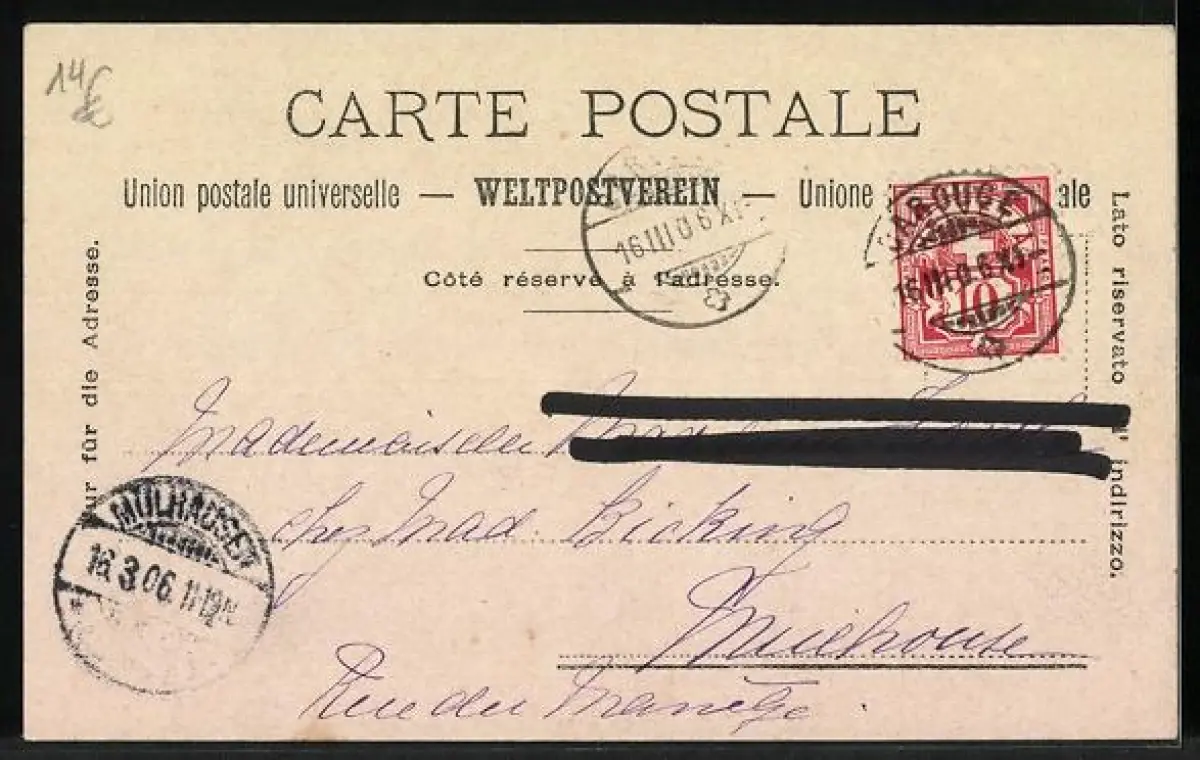 14
CARTE POSTALE
Union postale universelle — WELTPOSTVEREIN — Unione ale
Côté réservé à l'adresse.
ur für die Adresse.
Lato riservato indirizzo.
CAROUGE
16 III 06 XI
10
16 III 06 XI
MÜLHAUSEN
16.3.06. 11-12 N
Mademoiselle
chez Mad. Bicking
Mulhouse
Rue du Manège.